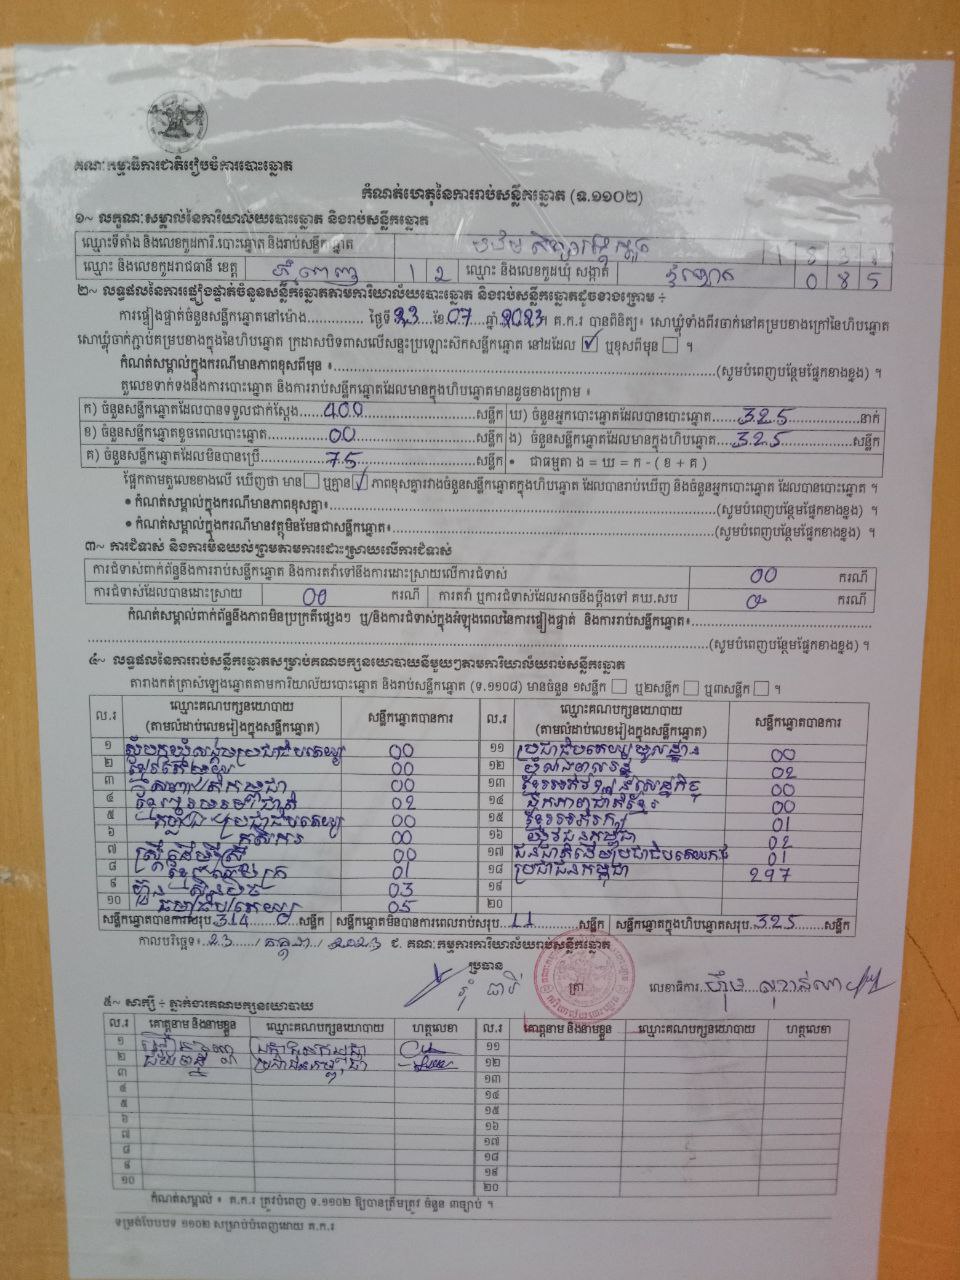 គណៈកម្មាធិការជាតិរៀបចំការបោះឆ្នោត
កំណត់ហេតុនៃការរាប់សន្លឹកឆ្នោត (ទ.១១០២)
១~ លក្ខណៈសម្គាល់នៃការិយាល័យបោះឆ្នោត និងរាប់សន្លឹកឆ្នោត
ឈ្មោះទីតាំង និងលេខកូដការិ.បោះឆ្នោត និងរាប់សន្លឹកឆ្នោត
ឈ្មោះ និងលេខកូដរាជធានី ខេត្ត ភ្នំពេញ 1 2 ឈ្មោះ និងលេខកូដឃុំ សង្កាត់ 0 8 5
២~ លទ្ធផលនៃការផ្ទៀងផ្ទាត់ចំនួនសន្លឹកឆ្នោតតាមការិយាល័យបោះឆ្នោត និងរាប់សន្លឹកឆ្នោតដូចខាងក្រោម ÷
ការផ្ទៀងផ្ទាត់ចំនួនសន្លឹកឆ្នោតនៅម៉ោង.............. ថ្ងៃទី 23 ខែ 07 ឆ្នាំ 2023 ។ គ.ក.រ បានពិនិត្យ៖ សោឃ្លុំទាំងពីរចាក់នៅគម្របខាងក្រៅនៃហិបឆ្នោត
សោឃ្លុំចាក់ភ្ជាប់គម្របខាងក្នុងនៃហិបឆ្នោត ក្រដាសបិទពាសលើសន្ទះប្រឡោះស៊កសន្លឹកឆ្នោត នៅដដែល ☑ ឬខុសពីមុន ☐ ។
កំណត់សម្គាល់ក្នុងករណីមានភាពខុសពីមុន ៖ (សូមបំពេញបន្ថែមផ្នែកខាងខ្នង) ។
តួលេខទាក់ទងនឹងការបោះឆ្នោត និងការរាប់សន្លឹកឆ្នោតដែលមានក្នុងហិបឆ្នោតមានដូចខាងក្រោម ៖
ក) ចំនួនសន្លឹកឆ្នោតដែលបានទទួលជាក់ស្តែង 400 សន្លឹក ឃ) ចំនួនអ្នកបោះឆ្នោតដែលបានបោះឆ្នោត 325 នាក់
ខ) ចំនួនសន្លឹកឆ្នោតខូចពេលបោះឆ្នោត 00 សន្លឹក ង) ចំនួនសន្លឹកឆ្នោតដែលមានក្នុងហិបឆ្នោត 325 សន្លឹក
គ) ចំនួនសន្លឹកឆ្នោតដែលមិនបានប្រើ 75 សន្លឹក • ជាធម្មតា ង = ឃ = ក - ( ខ + គ )
ផ្អែកតាមតួលេខខាងលើ ឃើញថា មាន ☐ ឬគ្មាន ☑ ភាពខុសគ្នារវាងចំនួនសន្លឹកឆ្នោតក្នុងហិបឆ្នោត ដែលបានរាប់ឃើញ និងចំនួនអ្នកបោះឆ្នោត ដែលបានបោះឆ្នោត ។
• កំណត់សម្គាល់ក្នុងករណីមានភាពខុសគ្នា៖ (សូមបំពេញបន្ថែមផ្នែកខាងខ្នង) ។
• កំណត់សម្គាល់ក្នុងករណីមានវត្ថុមិនមែនជាសន្លឹកឆ្នោត៖ (សូមបំពេញបន្ថែមផ្នែកខាងខ្នង) ។
៣~ ការជំទាស់ និងការមិនយល់ព្រមតាមការដោះស្រាយលើការជំទាស់
ការជំទាស់ពាក់ព័ន្ធនឹងការរាប់សន្លឹកឆ្នោត និងការតវ៉ាទៅនឹងការដោះស្រាយលើការជំទាស់ 00 ករណី
ការជំទាស់ដែលបានដោះស្រាយ 00 ករណី ការតវ៉ា ឬការជំទាស់ដែលអាចនឹងប្តឹងទៅ គឃ.សប ករណី
កំណត់សម្គាល់ពាក់ព័ន្ធនឹងភាពមិនប្រក្រតីផ្សេងៗ ឬ/និងការជំទាស់ក្នុងអំឡុងពេលនៃការផ្ទៀងផ្ទាត់ និងការរាប់សន្លឹកឆ្នោត៖
(សូមបំពេញបន្ថែមផ្នែកខាងខ្នង) ។
៤~ លទ្ធផលនៃការរាប់សន្លឹកឆ្នោតសម្រាប់គណបក្សនយោបាយនីមួយៗតាមការិយាល័យរាប់សន្លឹកឆ្នោត
តារាងកត់ត្រាសំឡេងឆ្នោតតាមការិយាល័យបោះឆ្នោត និងរាប់សន្លឹកឆ្នោត (ទ.១១០៨) មានចំនួន ១សន្លឹក ☐ ឬ២សន្លឹក ☐ ឬ៣សន្លឹក ☐ ។
ល.រ ឈ្មោះគណបក្សនយោបាយ (តាមលំដាប់លេខរៀងក្នុងសន្លឹកឆ្នោត) សន្លឹកឆ្នោតបានការ ល.រ ឈ្មោះគណបក្សនយោបាយ (តាមលំដាប់លេខរៀងក្នុងសន្លឹកឆ្នោត) សន្លឹកឆ្នោតបានការ
១ សំបុកឃ្មុំសង្គមប្រជាធិបតេយ្យ 00 ១១ 00
២ ខ្មែរតែមួយ 00 ១២ 02
៣ 00 ១៣ ខ្មែរអភិវឌ្ឍន៍សេដ្ឋកិច្ច 00
៤ 02 ១៤ ឯកភាពជាតិខ្មែរ 00
៥ កម្លាំងប្រជាធិបតេយ្យ 00 ១៥ 01
៦ កសិករ 00 ១៦ យុវជនកម្ពុជា 02
៧ ស្ត្រីដើម្បីស្ត្រី 00 ១៧ 01
៨ 01 ១៨ ប្រជាជនកម្ពុជា 297
៩ ហ៊្វុនស៊ិនប៉ិច 03 ១៩
១០ ធម្មាធិបតេយ្យ 05 ២០
សន្លឹកឆ្នោតបានការសរុប 314 សន្លឹក សន្លឹកឆ្នោតមិនបានការពេលរាប់សរុប 11 សន្លឹក សន្លឹកឆ្នោតក្នុងហិបឆ្នោតសរុប 325 សន្លឹក
កាលបរិច្ឆេទ៖ 23 / កក្កដា / 2023 ជ. គណៈកម្មការការិយាល័យរាប់សន្លឹកឆ្នោត
ប្រធាន
ត្រា លេខាធិការ
៥~ សាក្សី ÷ ភ្នាក់ងារគណបក្សនយោបាយ
ល.រ គោត្តនាម និងនាមខ្លួន ឈ្មោះគណបក្សនយោបាយ ហត្ថលេខា ល.រ គោត្តនាម និងនាមខ្លួន ឈ្មោះគណបក្សនយោបាយ ហត្ថលេខា
១ ១១
២ ប្រជាជនកម្ពុជា ១២
៣ ១៣
៤ ១៤
៥ ១៥
៦ ១៦
៧ ១៧
៨ ១៨
៩ ១៩
១០ ២០
កំណត់សម្គាល់ ៖ គ.ក.រ ត្រូវបំពេញ ទ.១១០២ ឱ្យបានត្រឹមត្រូវ ចំនួន ៣ច្បាប់ ។
ទម្រង់បែបបទ ១១០២ សម្រាប់បំពេញដោយ គ.ក.រ